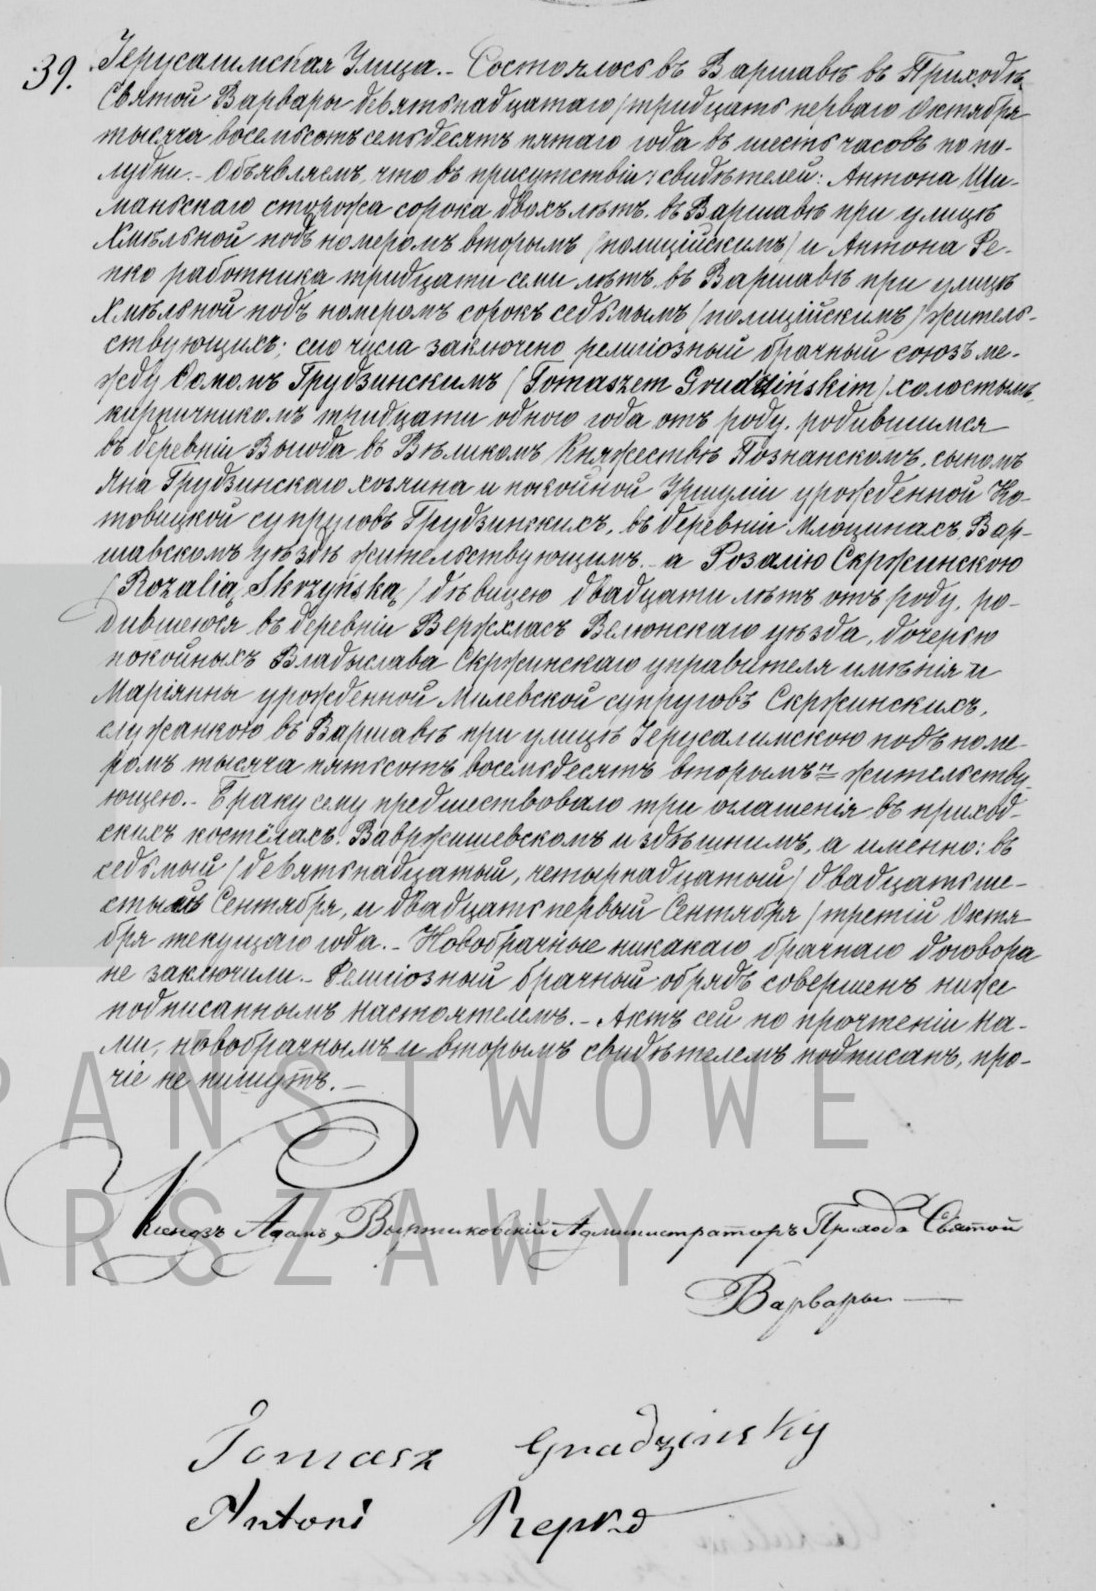 39. Іерусалимская Улица. – Состоялось въ Варшавѣ въ Приходѣ
Святой Варвары девятнадцатаго / тридцать перваго Октября
тысяча восемьсотъ семьдесятъ пятаго года въ шесть часовъ по по-
лудни. – Объявляемъ, что въ присутствіи свидѣтелей: Антона Ши-
манскаго сторожа сорока двохъ лѣтъ, въ Варшавѣ при улицѣ
Хмѣльной подъ номеромъ вторымъ / полицiйскимъ / и Антона Ре-
пко работника тридцати семи лѣтъ, въ Варшавѣ при улицѣ
Хмѣльной подъ номеромъ сорокъ седьмымъ / полиційскимъ / житель-
ствующихъ; сего числа заключено религіозный брачный союзъ ме-
жду Ѳомомъ Грудзинскимъ / Tomaszem Grudzińskim / холостымъ,
кирпичникомъ тридцати одного года отъ роду, родившимся
въ деревніи Выгода въ Вѣликомъ Княжествѣ Познанскомъ, сыномъ
Яна Грудзинскаго хозяина и покойной Уршулiи урожденной Ко-
товицкой супруговъ Грудзинскихъ, въ деревніи Млоцинахъ Вар-
шавскомъ уѣздѣ жительствующимъ – а Розалію Скржинскою
/ Rozalią Skrzyńską / дѣвицею двадцати лѣтъ отъ роду, ро-
дившеюся въ деревніи Вержхласъ Велюнскаго уѣзда, дочерью
покойныхъ Владыслава Скржинскаго управителя имѣнія и
Маріянны урожденной Милевской супруговъ Скржинскихъ,
служанкою въ Варшавѣ при улицѣ Іерусалимскою подъ номе-
ромъ тысяча пятьсотъ восемьдесятъ вторымъ жительству-
ющею. – Браку сему предшествовало три оглашенія въ приход-
скихъ костёлахъ: Вавржишевскомъ и здѣшнимъ, а именно: въ
седьмый / девятнадцатый, четырнадцатый / двадцать ше-
стый Сентября, и двадцать первый Сентября / третій Октя-
бря текущаго года. – Новобрачные никакаго брачнаго договора
не заключили. – Религіозный брачный обрядъ совершенъ ниже
подписаннымъ Настоятелемъ. – Актъ сей по прочтеніи на-
ми, новобрачнымъ и вторымъ свидѣтелемъ подписанъ, про-
чіе не пишутъ. –
PAŃSTWOWE
Ксендзъ Адамъ Администраторъ Прихода Святой
ARSZAWY
Варвары
Tomasz Grudzinsky
Antoni Repko